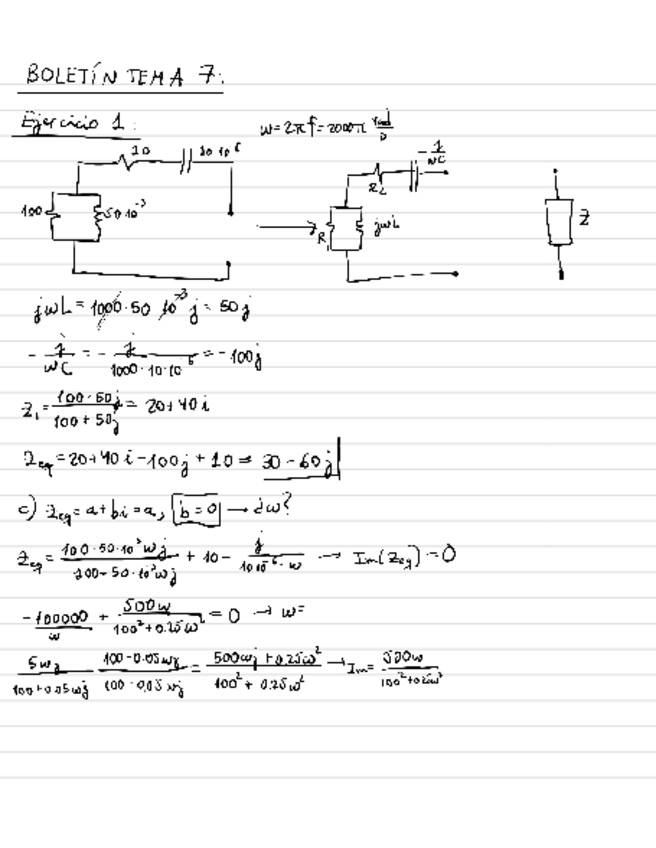 BOLETÍN TEMA 7:
Ejercicio 1:
ω=2πf=2000π rad/s
10
10·10^-6
100
50·10^-3
R2
-1/ωC
R
jωL
Z
jωL = 1000·50·10^-3 j = 50j
-j/ωC = -j/(1000·10·10^-6) = -100j
Z1 = (100·50j)/(100+50j) = 20+40i
Zeq = 20+40i-100j+10 = 30-60j
c) Zeq = a+bi = a, b=0 → ¿ω?
Zeq = (100·50·10^-3 ωj)/(100+50·10^-3 ωj) + 10 - j/(10·10^-6·ω) → Im(Zeq) = 0
-100000/ω + 500ω/(100^2+0.25ω^2) = 0 → ω=
5ωj/(100+0.05ωj) (100-0.05ωj)/(100-0.05ωj) = (500ωj+0.25ω^2)/(100^2+0.25ω^2) → Im = 500ω/(100^2+0.25ω^2)